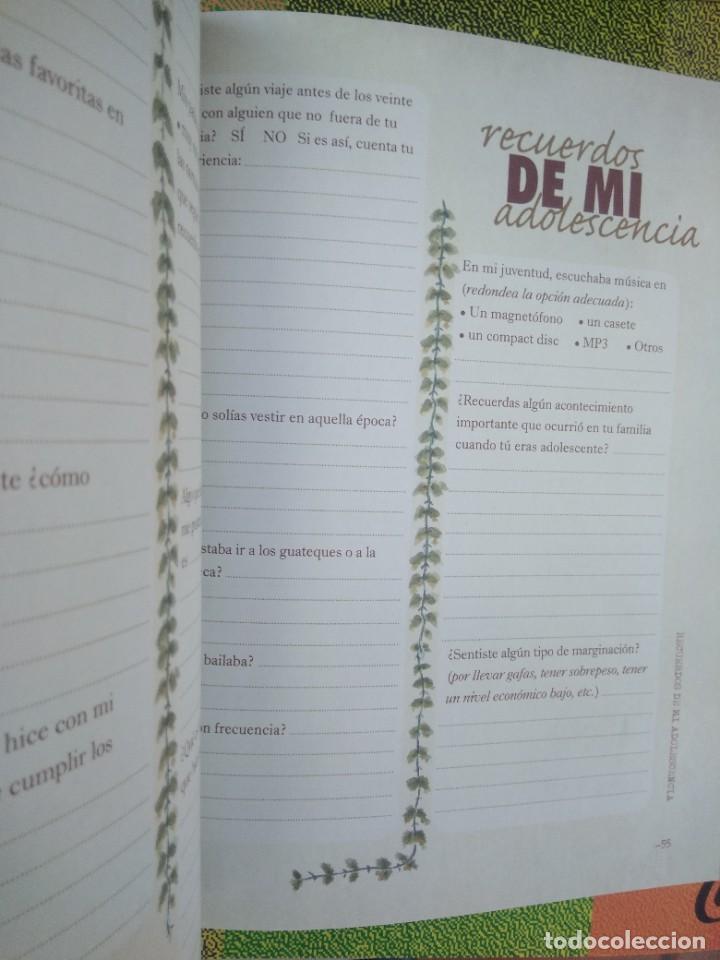 as favoritas en
te ¿cómo
hice con mi
cumplir los
iste algún viaje antes de los veinte
con alguien que no fuera de tu
ia? SÍ NO Si es así, cuenta tu
riencia:
o solías vestir en aquella época?
staba ir a los guateques o a la
ca?
bailaba?
on frecuencia?
recuerdos
DE MI
adolescencia
En mi juventud, escuchaba música en
(redondea la opción adecuada):
• Un magnetófono • un casete
• un compact disc • MP3 • Otros
¿Recuerdas algún acontecimiento
importante que ocurrió en tu familia
cuando tú eras adolescente?
¿Sentiste algún tipo de marginación?
(por llevar gafas, tener sobrepeso, tener
un nivel económico bajo, etc.)
RECUERDOS DE MI ADOLESCENCIA
–55
todocoleccion